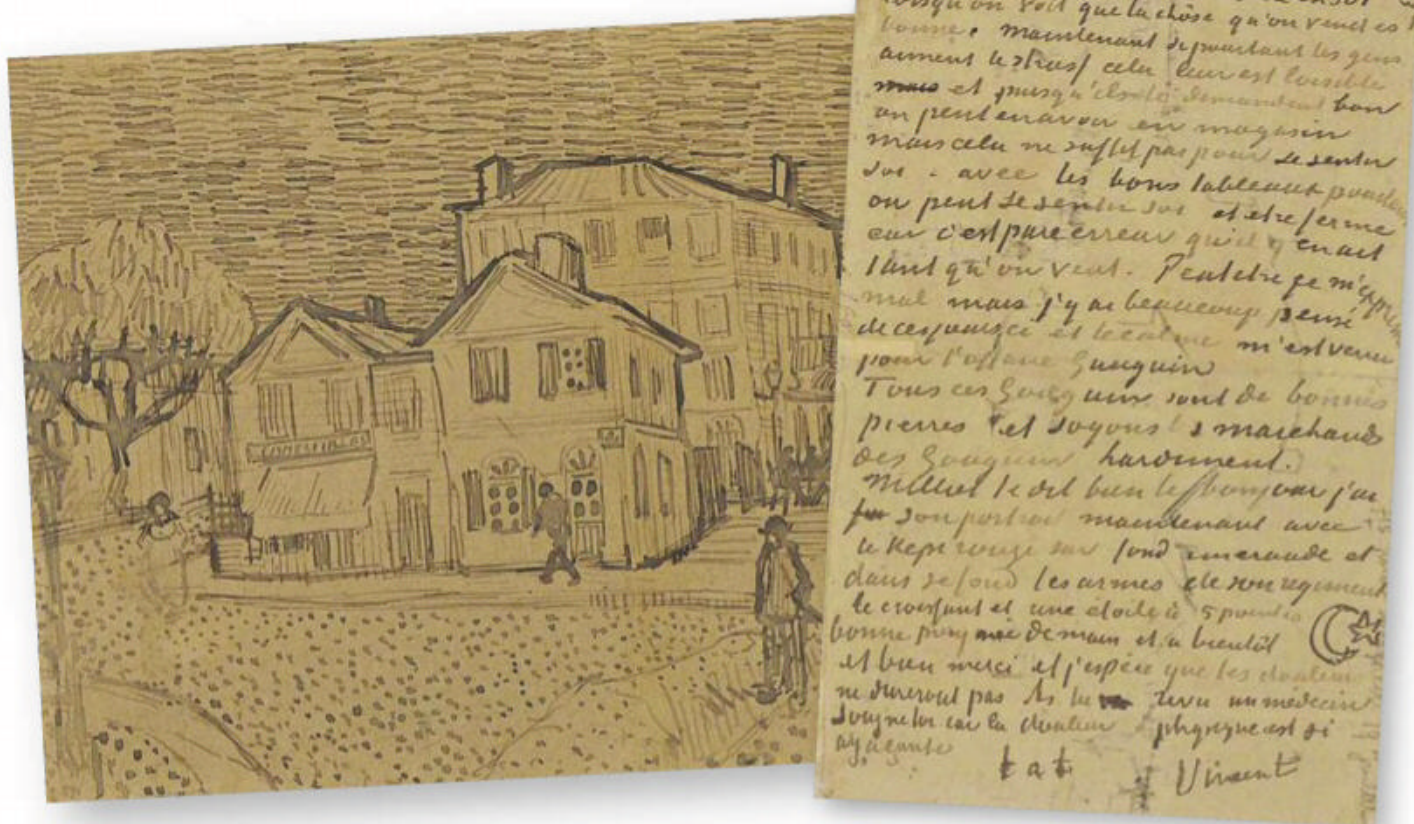 lorsqu'on voit que la chôse qu'on vend est
bonne. maintenant si pourtant les gens
aiment le strass cela leur est loisible
mais et puisqu'ils le demandent bon
on peut en avoir en magasin
mais cela ne suffit pas pour se sentir
sur. avec les bons tableaux pourtant
on peut se sentir sur et etre ferme
car c'est pure erreur qu'il y en ait
tant qu'on veut. Peut etre je m'exprime
mal mais j'y ai beaucoup pensé
de ces jours ci et le calme m'est venu
pour l'affaire Gauguin
Tous ces Gauguin sont de bonnes
pierres et soyons marchands
des Gauguin hardiment.
Milliet te dit bien le bonjour j'ai
son portrait maintenant avec
le Kepi rouge sur fond emeraude et
dans ce fond les armes de son regiment
le croissant et une etoile à 5 pointes
bonne poignée de main et a bientôt
et bien merci et j'espère que les douleurs
ne dureront pas As tu revu un médecin
soigne toi car la douleur physique est si
agaçante
t a t Vincent